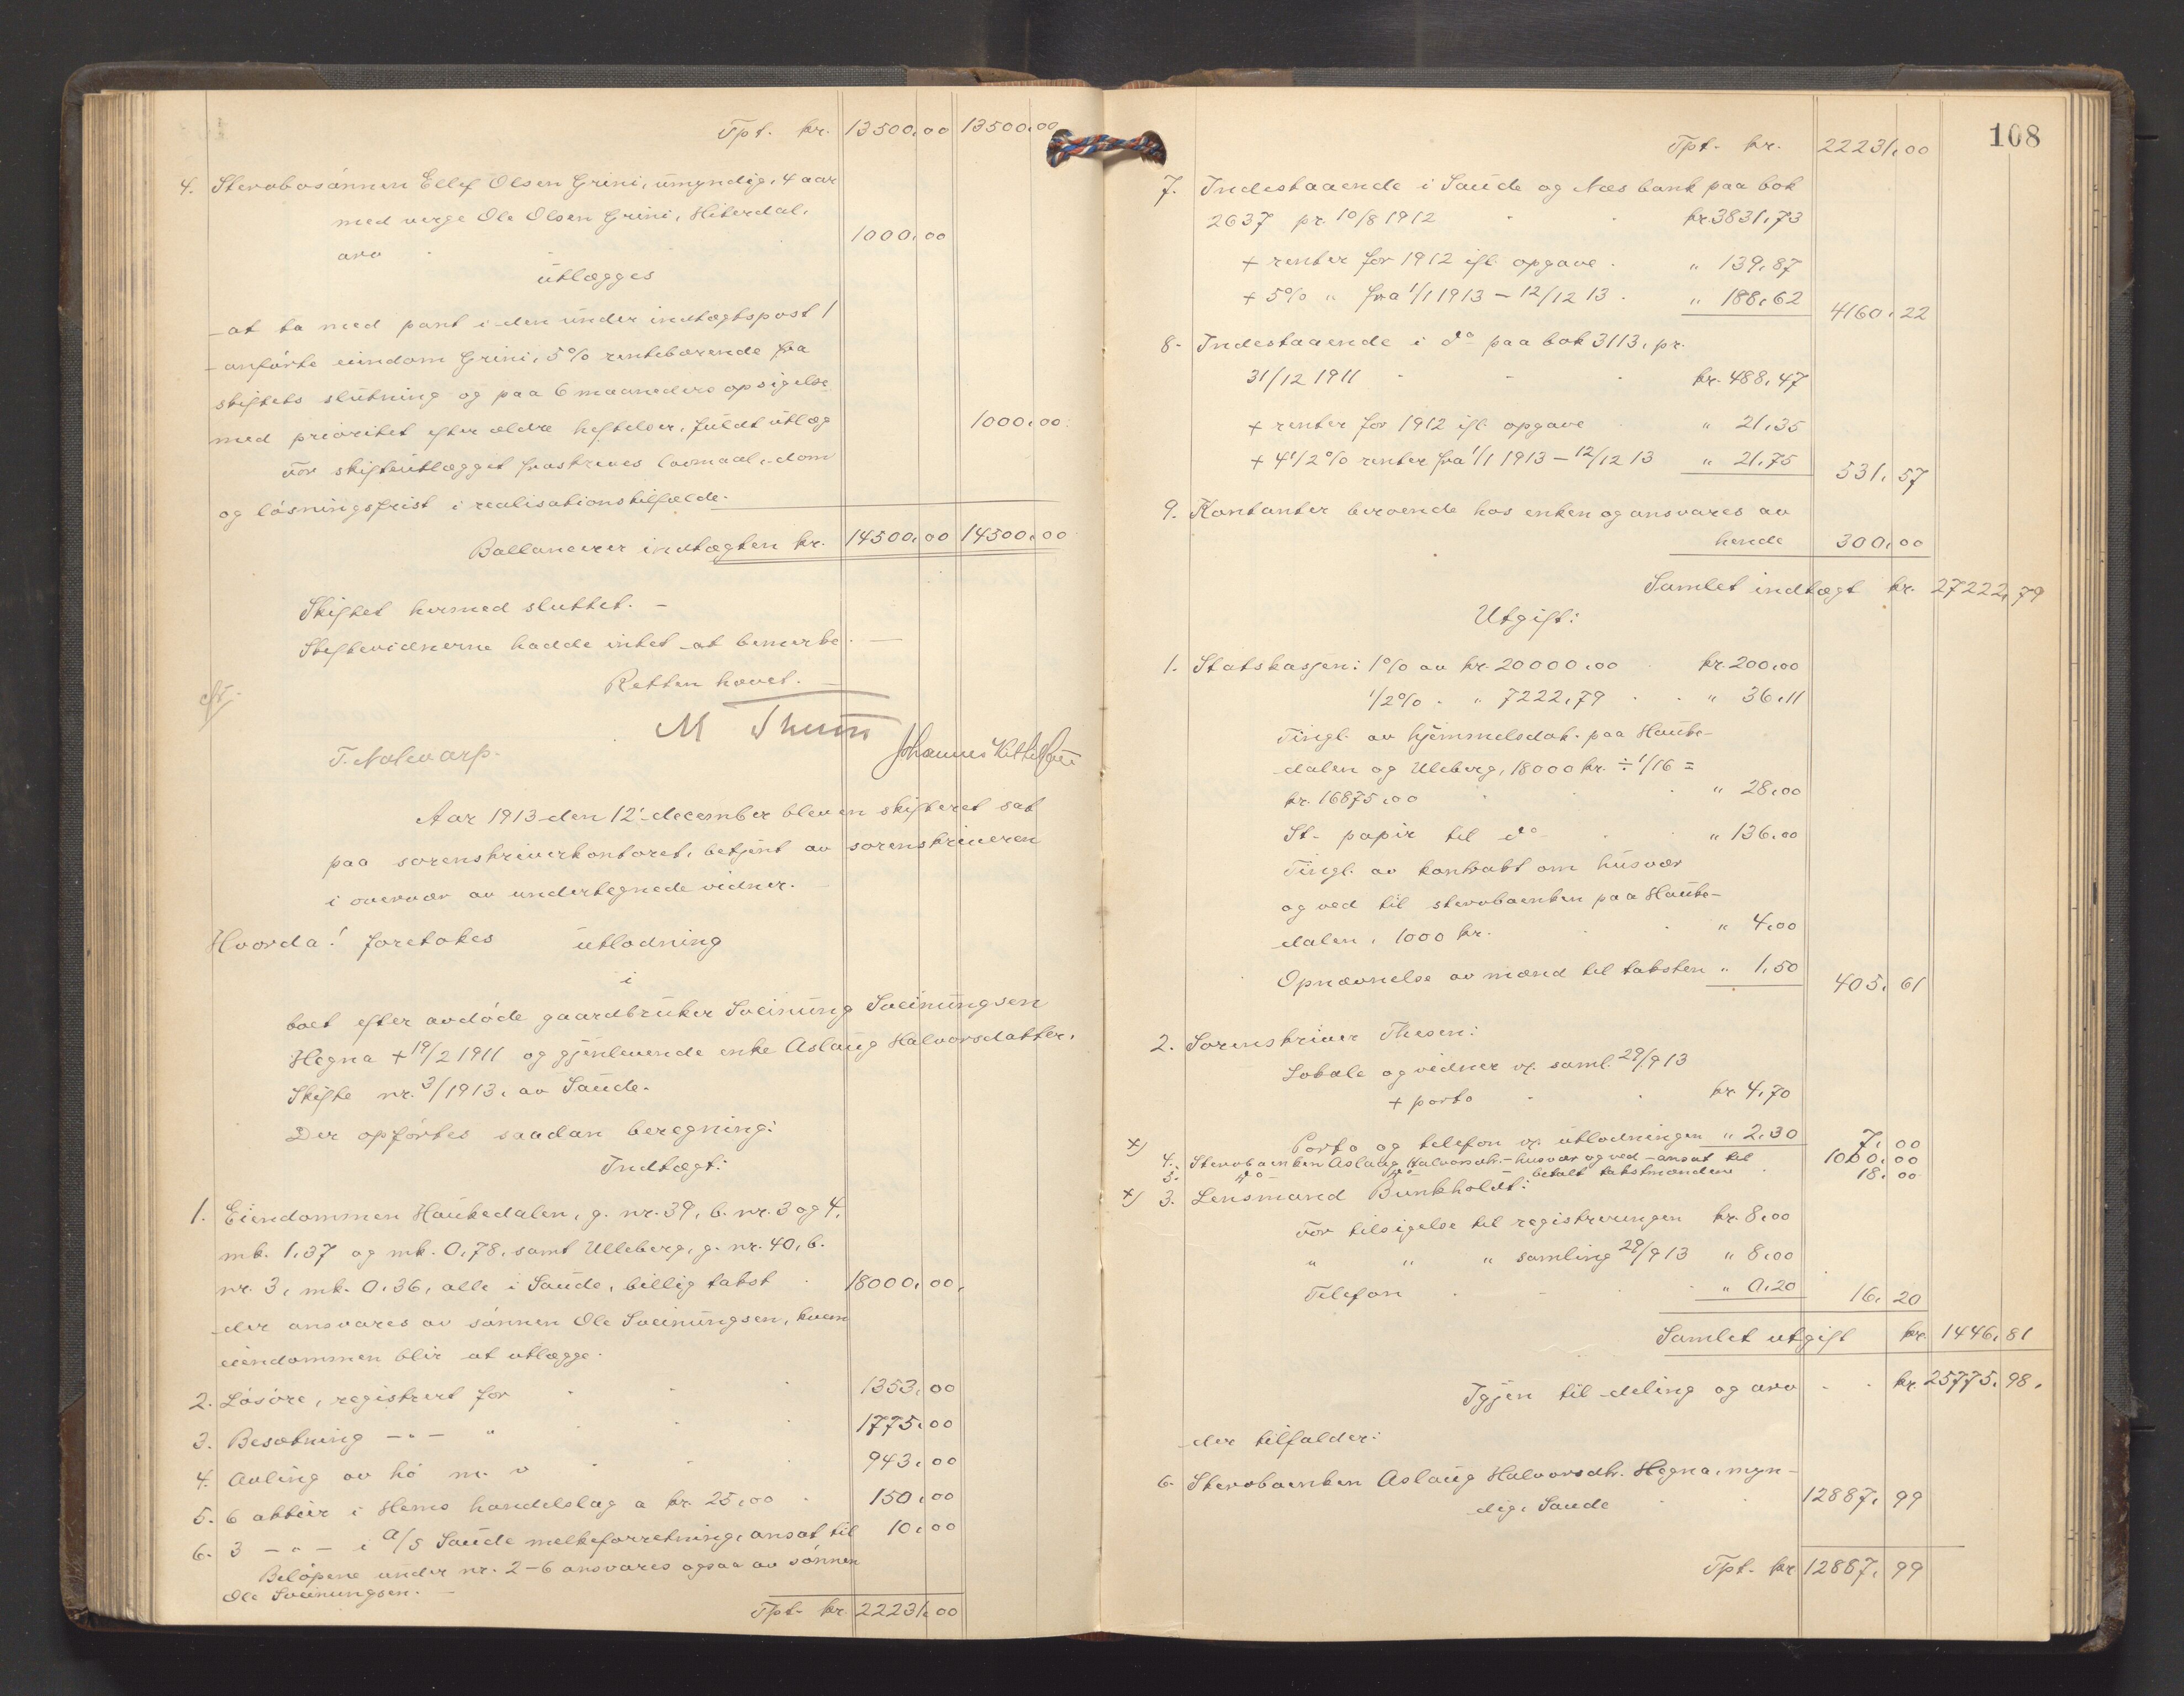 Tpt. kr. 13500,00 13500,00
4. Stervbosønnen Ellef Olsen Grini, umyndig, 4 aar
med verge Ole Olsen Grini, Hiterdal,
arv 1000,00
utlægges
at ta med pant i den under indtægtspost 1
anførte eiendom Grini, 5% rentebærende fra
skiftets slutning og paa 6 maaneders opsigelse
med prioritet efter ældre heftelser, fuldt utlæg 1000,00.
For skifteutlægget fraskrives lovmaal, dom
og løsningsfrist i realisationstilfælde.
Ballancerer indtægten kr. 14500,00 14500,00
Skiftet hermed sluttet. —
Skiftevidnerne hadde intet at bemerke. —
Retten hævet. —
M Thesen
T. Nolevarp. Johannes Kittelsen
Aar 1913 den 12' december blev en skifteret sat
paa sorenskriverkontoret, betjent av sorenskriveren
i overvær av undertegnede vidner.
Hvorda! foretokes utlodning
i
boet efter avdøde gaardbruker Sveinung Sveinungsen
Hegna + 19/2 1911 og gjenlevende enke Aslaug Halvorsdatter,
Skifte nr. 3/1913, av Saude.
Der opførtes saadan beregning:
Indtægt:
1. Eiendommen Haukedalen, g. nr. 39, b. nr. 3 og 4,
mk. 1,37 og mk. 0,78, samt Ulleberg, g. nr. 40, b.
nr. 3, mk. 0,36, alle i Saude, billig takst 18000,00,
der ansvares av sønnen Ole Sveinungsen, hvem
eiendommen blir at utlægge.
2. Løsøre, registrert for 1353,00
3. Besætning —"— " 1775,00
4. Avling av hø m. v 943,00
5. 6 aktier i Hems handelslag a kr. 25,00 150,00
6. 3 —"— i A/S Saude melkeforretning, ansat til 10,00
Beløpene under nr. 2-6 ansvares ogsaa av sønnen
Ole Sveinungsen. —
Tpt. kr. 22231,00
108
Tpt. kr. 22231,00
7. Indestaaende i Saude og Næs bank paa bok
2637 pr. 10/8 1912 kr. 3831,73
+ renter for 1912 ifl. opgave " 139,87
+ 5% " fra 1/1 1913 — 12/12 13 " 188,62 4160,22
8. Indestaaende i do paa bok 3113, pr.
31/12 1911 kr. 488,47
+ renter for 1912 ifl. opgave " 21,35
+ 4 1/2 % renter fra 1/1 1913 — 12/12 13 " 21,75 531,57
9. Kontanter beroende hos enken og ansvares av
hende 300,00
Samlet indtægt kr. 27222,79
Utgift:
1. Statskassen: 1% av kr. 20000,00 kr. 200,00
1/2% " " 7222,79 " 36,11
Tingl. av hjemmelsdok. paa Hauke-
dalen og Uleberg, 18000 kr. ÷ 1/16 =
kr. 16875,00 " 28,00
St. papir til do " 136,00
Tingl. av kontrakt om husvær
og ved til stervboenken paa Hauke-
dalen, 1000 kr. " 4,00
Opnævnelse av mænd til taksten " 1,50 405,61
2. Sorenskriver Thesen:
Lokale og vidner v. saml. 29/9 13
+ porto kr. 4,70
x) Porto og telefon v. utlodningen " 2,30 7,00
4. Stervboenken Aslaug Halvorsdtr. — husvær og ved — ansat til 1000,00
5. do — do — betalt takstmændene 18,00
x) 3. Lensmand Bunkholdt:
For tilsigelse til registreringen kr. 8,00
" " " samling 29/9 13 " 8,00
Telefon " 0,20 16,20
Samlet utgift kr. 1446,81
Igjen til deling og arv kr. 25775,98,
der tilfalder:
6. Stervboenken Aslaug Halvorsdtr. Hegna, myn-
dig, Saude 12887,99
Tpt. kr 12887,99